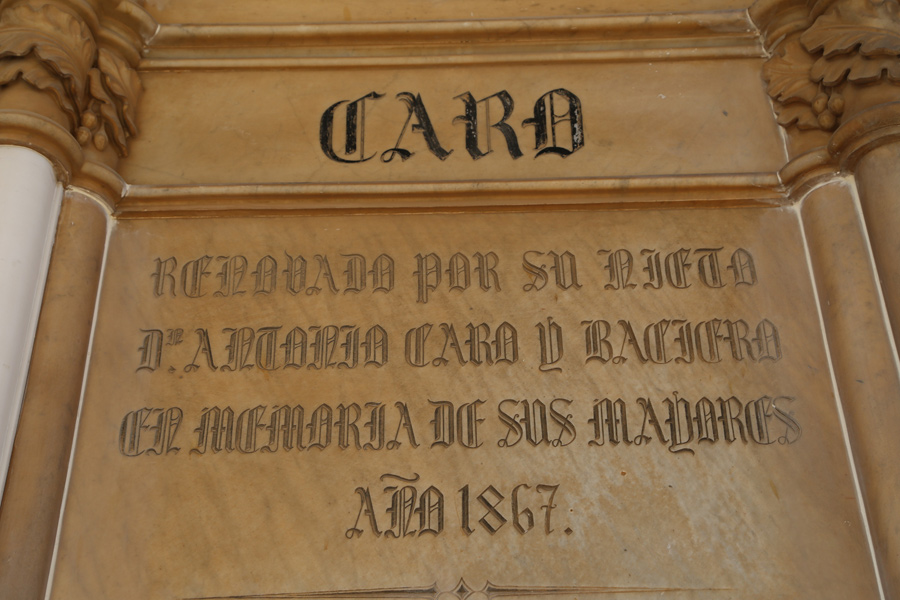 CARO
RENOVADO POR SU NIETO
Dn. ANTONIO CARO Y BACIERO
EN MEMORIA DE SUS MAYORES
AÑO 1867.